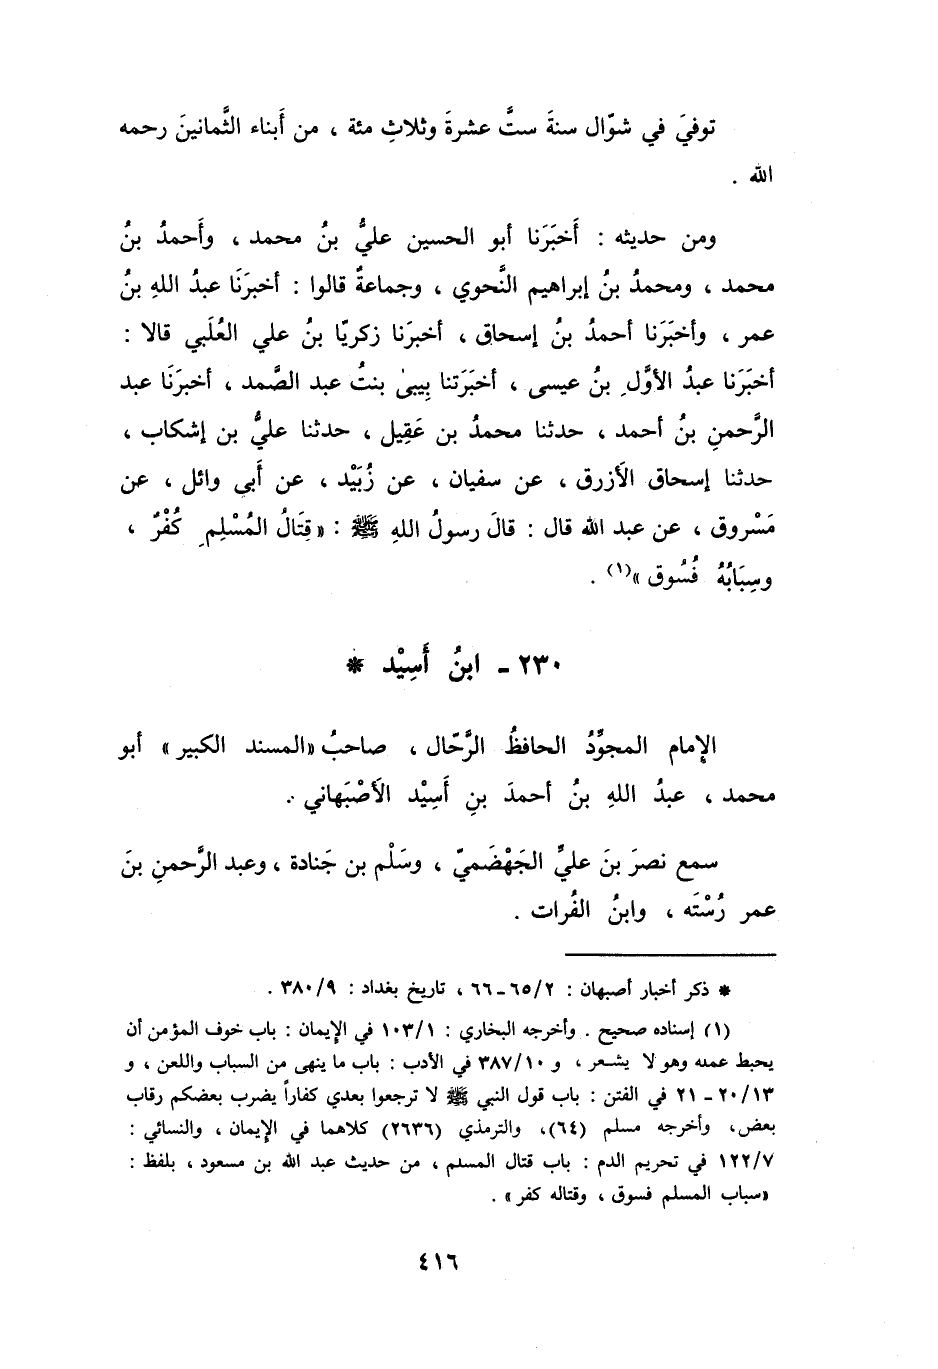 توفيَ في شوّال سنةَ ستَّ عشرةَ وثلاثِ مئة ، من أَبناء الثَّمانينَ رحمه
الله .
ومن حديثه : أَخبَرَنا أبو الحسين عليُّ بنُ محمد ، وأَحمدُ بنُ
محمد ، ومحمدُ بنُ إبراهيم النَّحوي ، وجماعةٌ قالوا : أخبرَنَا عبدُ اللهِ بنُ
عمر ، وأخبَرَنا أحمدُ بنُ إسحاق ، أخبرَنا زكريّا بنُ علي العُلَبي قالا :
أخبَرَنا عبدُ الأوَّلِ بنُ عيسى ، أخبَرَتنا بِيبىٰ بنتُ عبد الصَّمد ، أخبرَنَا عبد
الرَّحمنِ بنُ أحمد ، حدثنا محمدُ بن عَقِيل ، حدثنا عليُّ بن إشكاب ،
حدثنا إسحاق الأَزرق ، عن سفيان ، عن زُبَيْد ، عن أَبي وائل ، عن
مَسْروق ، عن عبد الله قال : قالَ رسولُ اللهِ ﷺ : « قِتَالُ المُسْلِمِ كُفْرٌ ،
وسِبَابُهُ فُسُوق »(١) .
٢٣٠ - ابنُ أَسِيْد *
الإِمام المجوِّدُ الحافظُ الرَّحّال ، صاحبُ «المسند الكبير» أبو
محمد ، عبدُ اللهِ بنُ أحمدَ بنِ أَسِيْد الأَصْبَهاني .
سمع نصرَ بنَ عليٍّ الجَهْضَميّ ، وسَلْم بن جَنادة ، وعبد الرَّحمنِ بنَ
عمر رُسْتَه ، وابنُ الفُرات .
* ذكر أخبار أصبهان : ٢/ ٦٥ - ٦٦ ، تاريخ بغداد : ٩/ ٣٨٠ .
(١) إسناده صحيح . وأخرجه البخاري : ١/ ١٠٣ في الإِيمان : باب خوف المؤمن أن
يحبط عمله وهو لا يشعر ، و ١٠/ ٣٨٧ في الأدب : باب ما ينهى من السباب واللعن ، و
١٣/ ٢٠ - ٢١ في الفتن : باب قول النبي ﷺ لا ترجعوا بعدي كفاراً يضرب بعضكم رقاب
بعض، وأخرجه مسلم (٦٤)، والترمذي (٢٦٣٦) كلاهما في الإِيمان ، والنسائي :
٧/ ١٢٢ في تحريم الدم : باب قتال المسلم ، من حديث عبد الله بن مسعود ، بلفظ :
«سباب المسلم فسوق ، وقتاله كفر» .
٤١٦